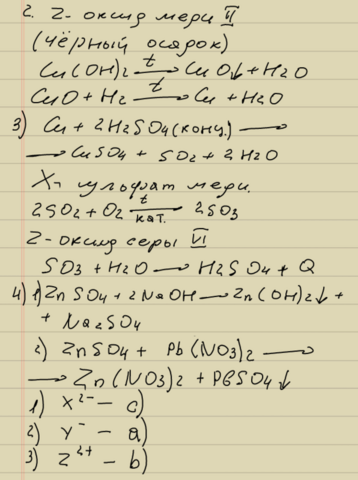 2. Z - оксид меди II
(чёрный осадок)
Cu(OH)2 —t→ CuO↓ + H2O
CuO + H2 —t→ Cu + H2O
3) Cu + 2H2SO4(конц.) →
→ CuSO4 + SO2 + 2H2O
X - сульфат меди.
2SO2 + O2 —t кат.→ 2SO3
Z - оксид серы VI
SO3 + H2O → H2SO4 + Q
4) 1) ZnSO4 + 2NaOH → Zn(OH)2↓ +
+ Na2SO4
2) ZnSO4 + Pb(NO3)2 →
→ Zn(NO3)2 + PbSO4↓
1) X²⁻ - c)
2) Y⁻ - a)
3) Z²⁺ - b)